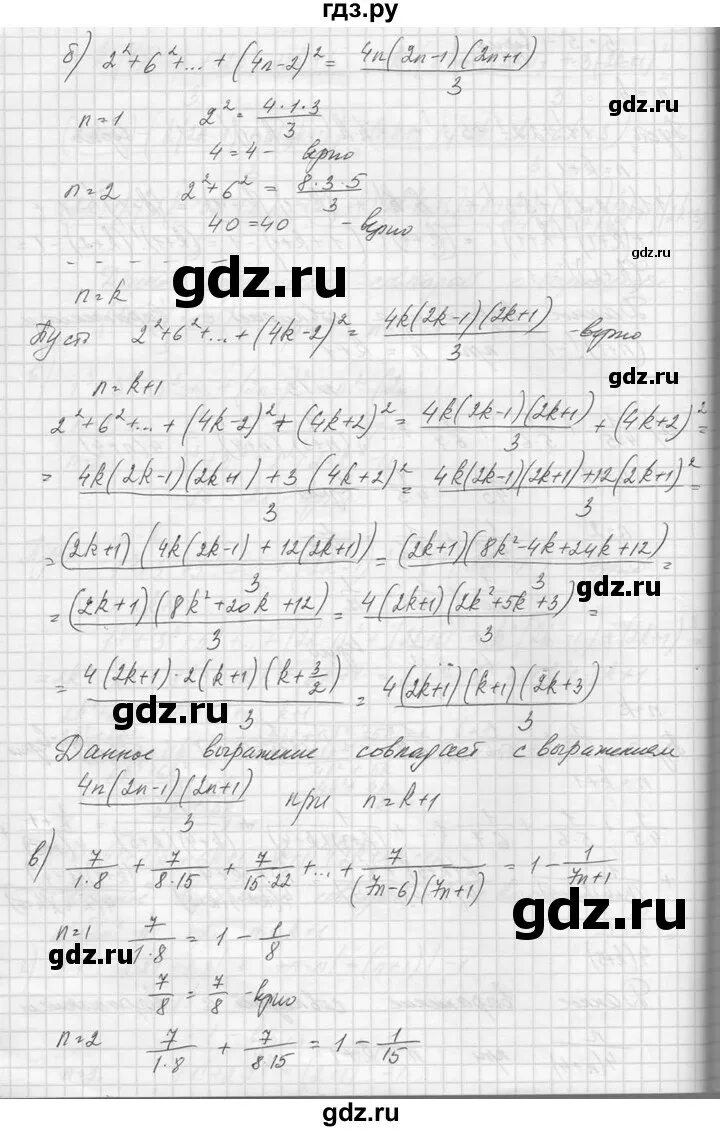 гдз.ру
б) 2² + 6² + ... + (4n-2)² = 4n(2n-1)(2n+1)/3
gdz.ru
n=1 2² = 4·1·3/3
4 = 4 - верно
n=2 2²+6² = 8·3·5/3
gdz.ru
40 = 40 - верно
- - - - - -
gdz.ru
gdz.ru
n=k
Пусть 2²+6²+...+(4k-2)² = 4k(2k-1)(2k+1)/3 - верно
gdz.ru
n=k+1
2²+6²+...+(4k-2)²+(4k+2)² = 4k(2k-1)(2k+1)/3 + (4k+2)² =
= 4k(2k-1)(2k+1)+3(4k+2)²/3 = 4k(2k-1)(2k+1)+12(2k+1)²/3 =
= (2k+1)(4k(2k-1)+12(2k+1))/3 = (2k+1)(8k²-4k+24k+12)/3 =
gdz.ru
= (2k+1)(8k²+20k+12)/3 = 4(2k+1)(2k²+5k+3)/3 =
= 4(2k+1)·2(k+1)(k+3/2)/3 = 4(2k+1)(k+1)(2k+3)/3
gdz.ru
Данное выражение совпадает с выражением
4n(2n-1)(2n+1)/3 при n=k+1
в) 7/1·8 + 7/8·15 + 7/15·22 + ... + 7/(7n-6)(7n+1) = 1 - 1/7n+1
gdz.ru
n=1 7/1·8 = 1 - 1/8
gdz.ru
7/8 = 7/8 - верно
n=2 7/1·8 + 7/8·15 = 1 - 1/15
gdz.ru
gdz.ru